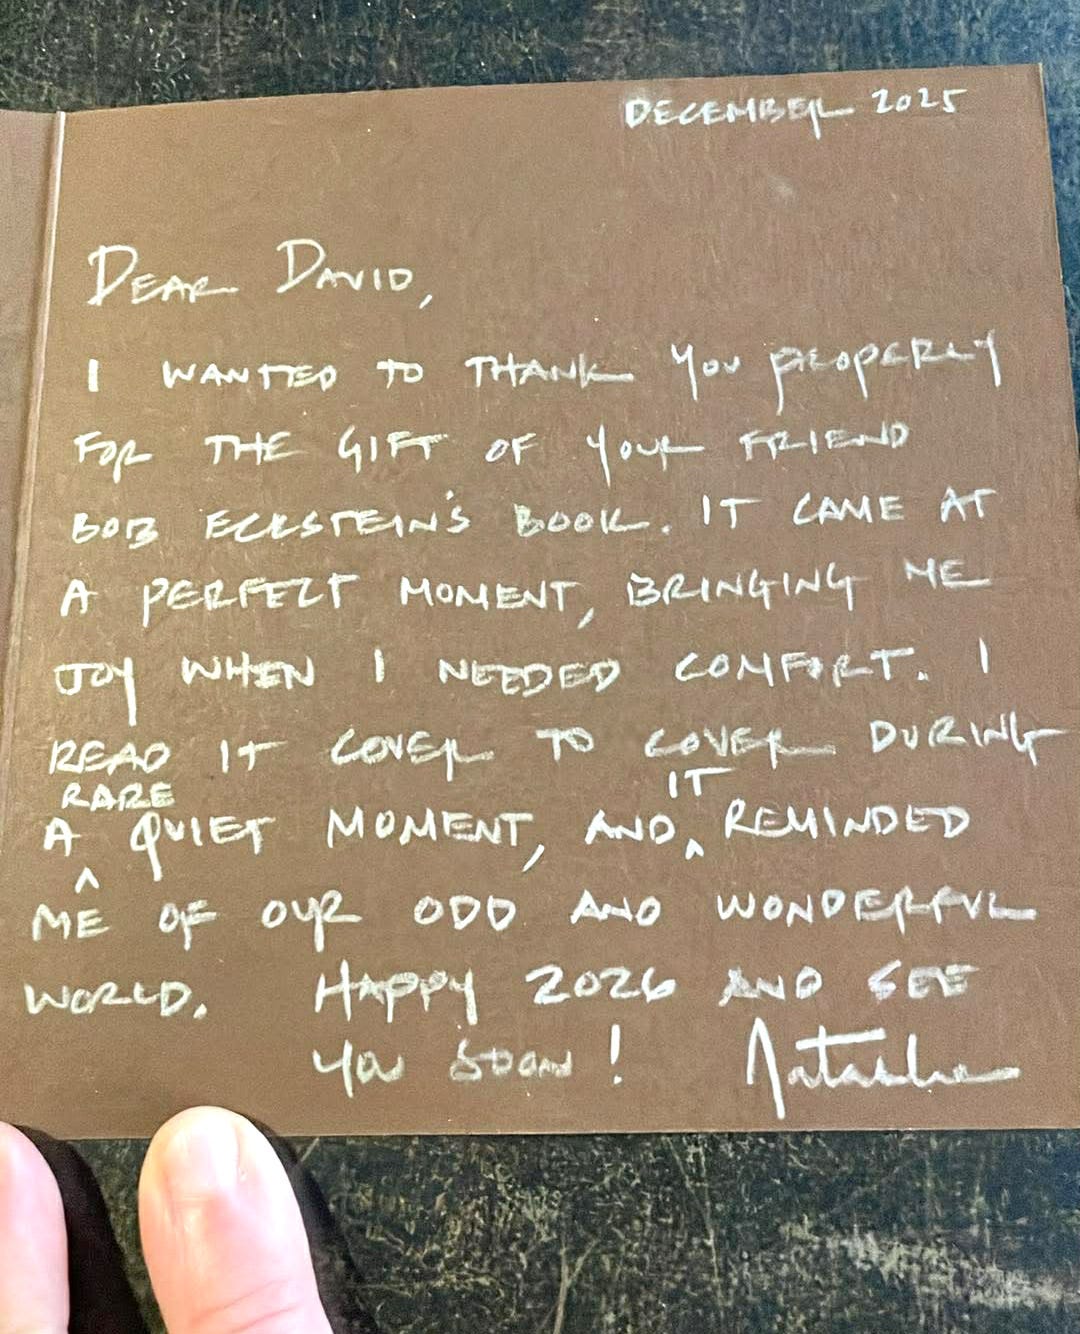 DECEMBER 2025
DEAR DAVID,
I WANTED TO THANK YOU PROPERLY
FOR THE GIFT OF YOUR FRIEND
BOB ECKSTEIN'S BOOK. IT CAME AT
A PERFECT MOMENT, BRINGING ME
JOY WHEN I NEEDED COMFORT. I
READ IT COVER TO COVER DURING
A RARE QUIET MOMENT, AND IT REMINDED
ME OF OUR ODD AND WONDERFUL
WORLD. HAPPY 2026 AND SEE
YOU SOON! Natasha